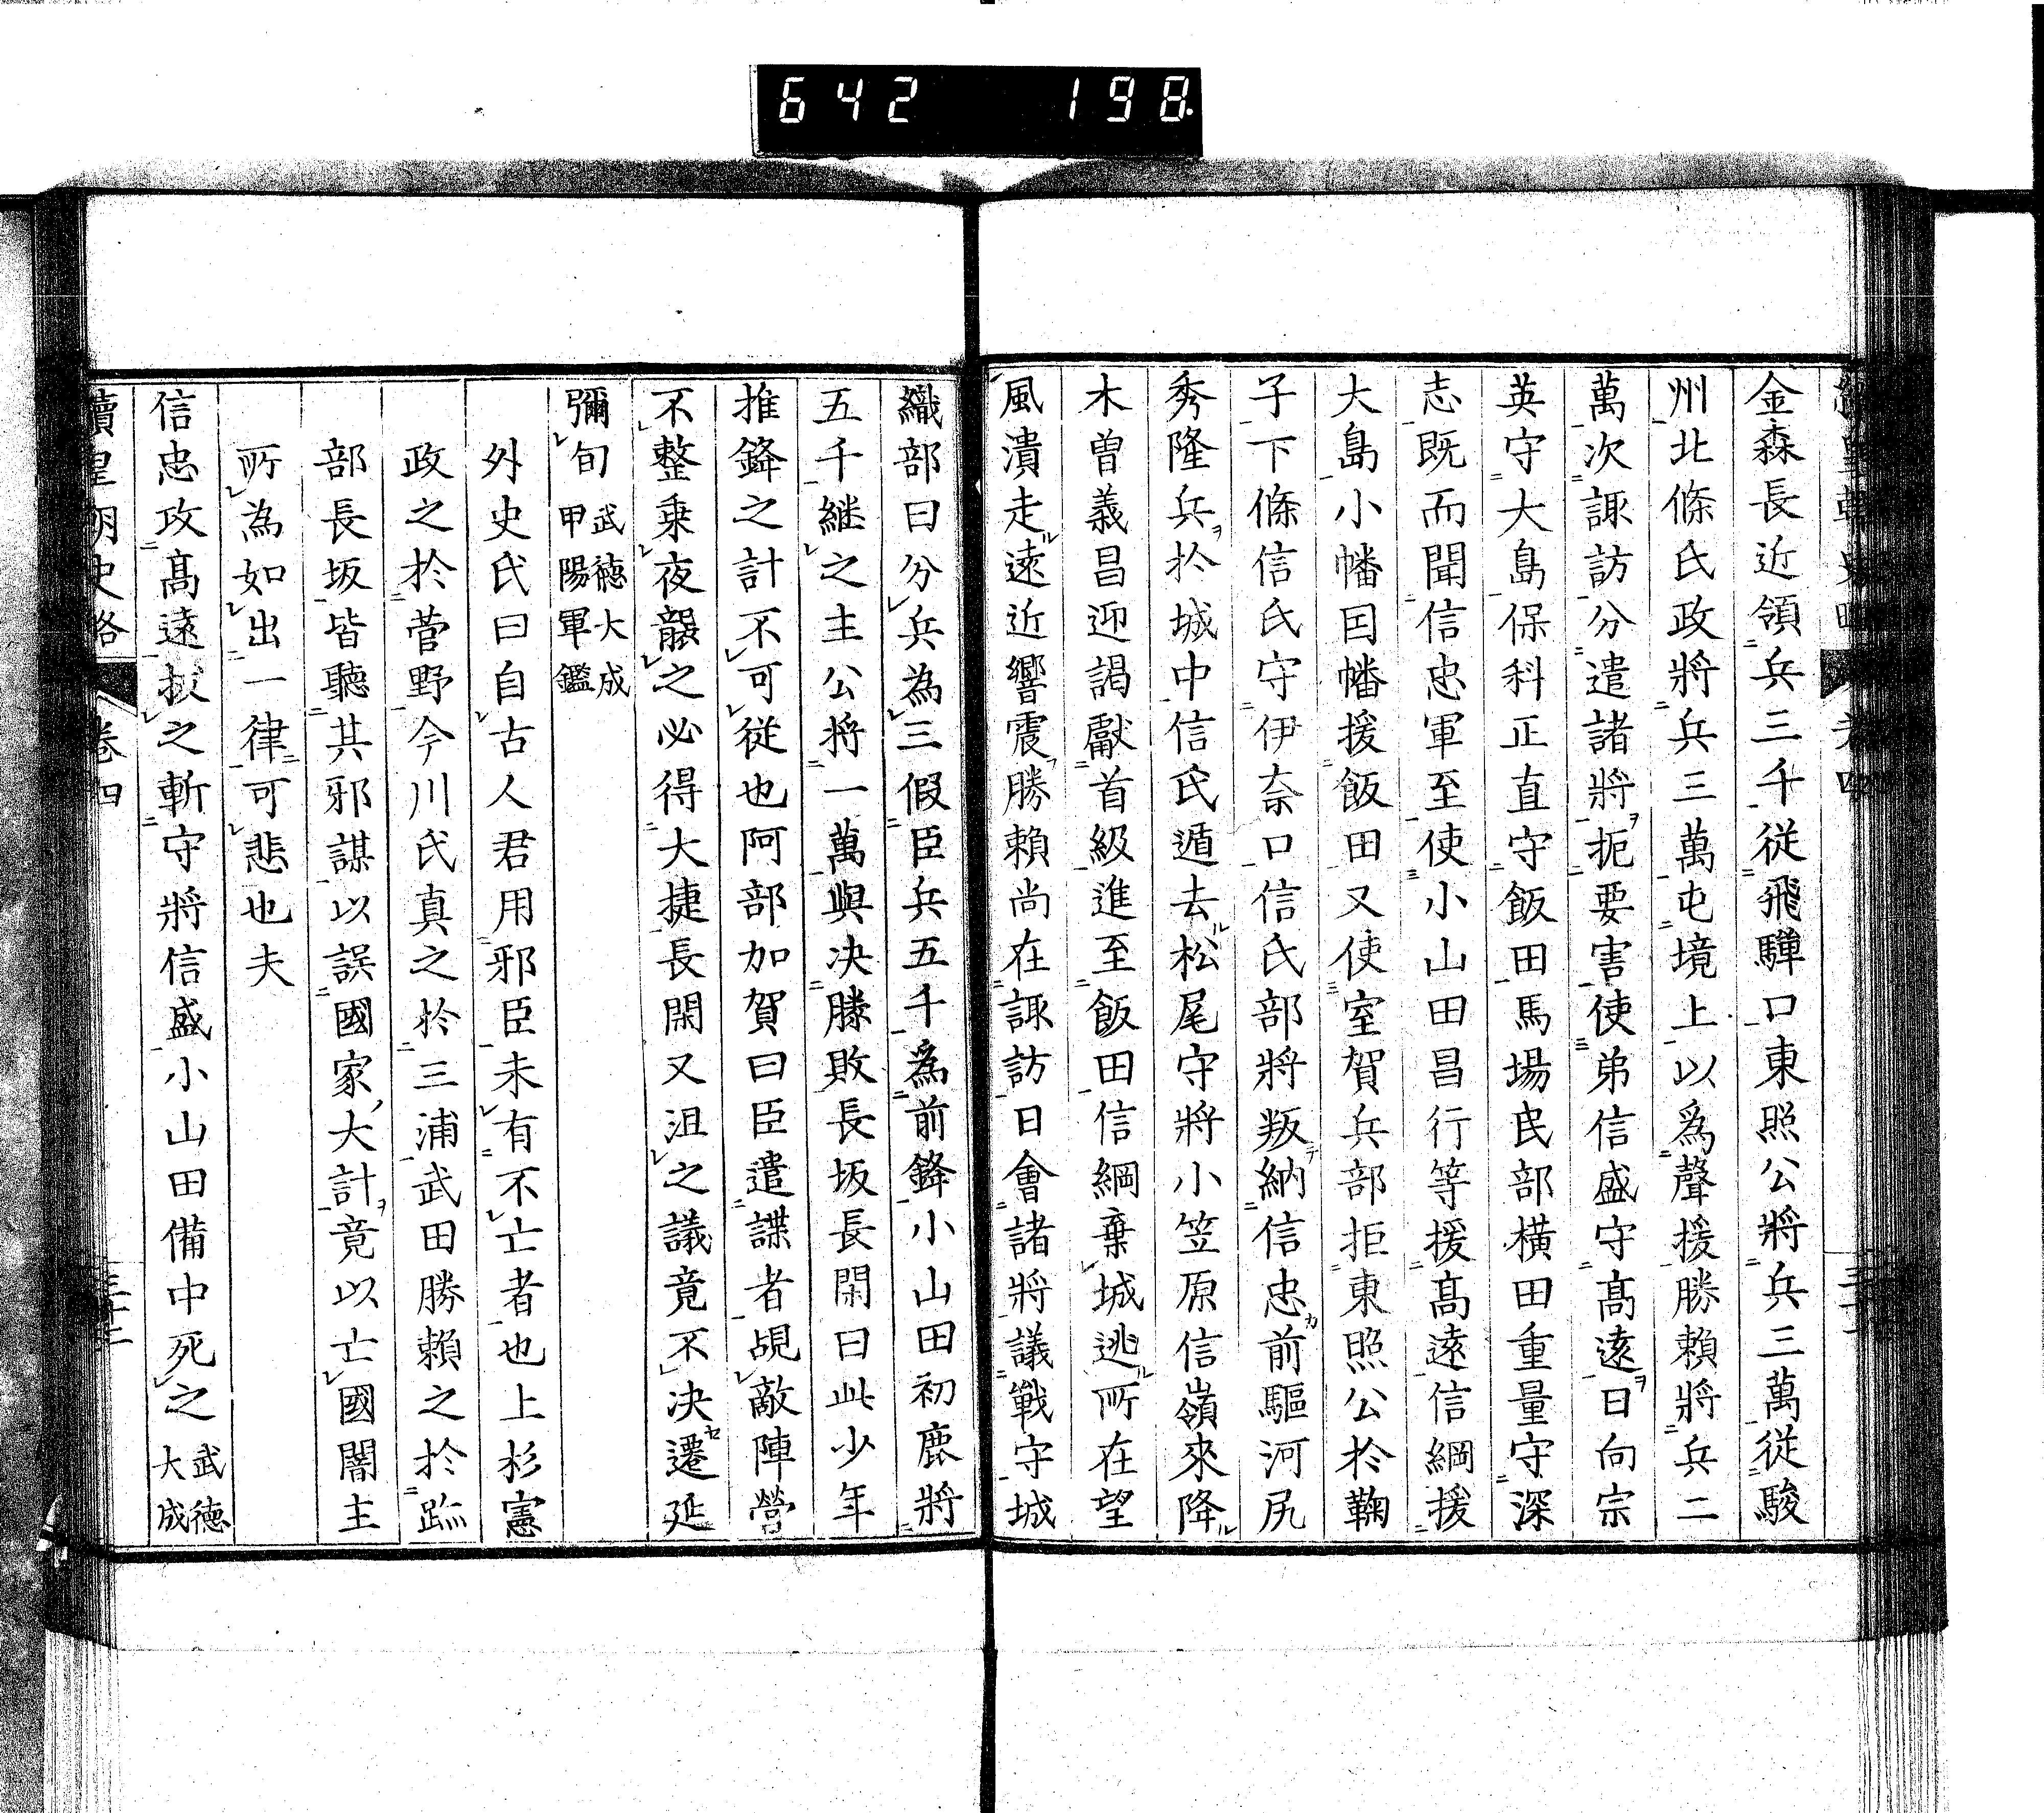 642 198
金森長近領兵三千從飛驒口東照公將兵三萬從駿
州北條氏政將兵三萬屯境上以爲聲援勝頼將兵二
萬次諏訪分遣諸將扼要害使弟信盛守髙遠日向宗
英守大島保科正直守飯田馬場民部横田重量守深
志既而聞信忠軍至使小山田昌行等援髙遠信綱援
大島小幡因幡援飯田又使室賀兵部拒東照公於鞠
子下條信氏守伊奈口信氏部將叛納信忠前驅河尻
秀隆兵於城中信氏遁去松尾守將小笠原信嶺來降
木曽義昌迎謁獻首級進至飯田信綱棄城逃所在望
風潰走遠近響震勝頼尚在諏訪日會諸將議戰守城
織部曰分兵為三假臣兵五千爲前鋒小山田初鹿將
五千継之主公將一萬與决勝敗長坂長閑曰此少年
推鋒之計不可從也阿部加賀曰臣遣諜者覘敵陣營
不整乗夜襲之必得大捷長閑又沮之議竟不决遷延
彌旬武德大成甲陽軍鑑
外史氏曰自古人君用邪臣未有不亡者也上杉憲
政之於菅野今川氏真之於三浦武田勝頼之於跡
部長坂皆聽其邪謀以誤國家大計竟以亡國闇主
所為如出一律可悲也夫
信忠攻髙遠拔之斬守將信盛小山田備中死之武德大成
續皇朝史略 卷四 三十二